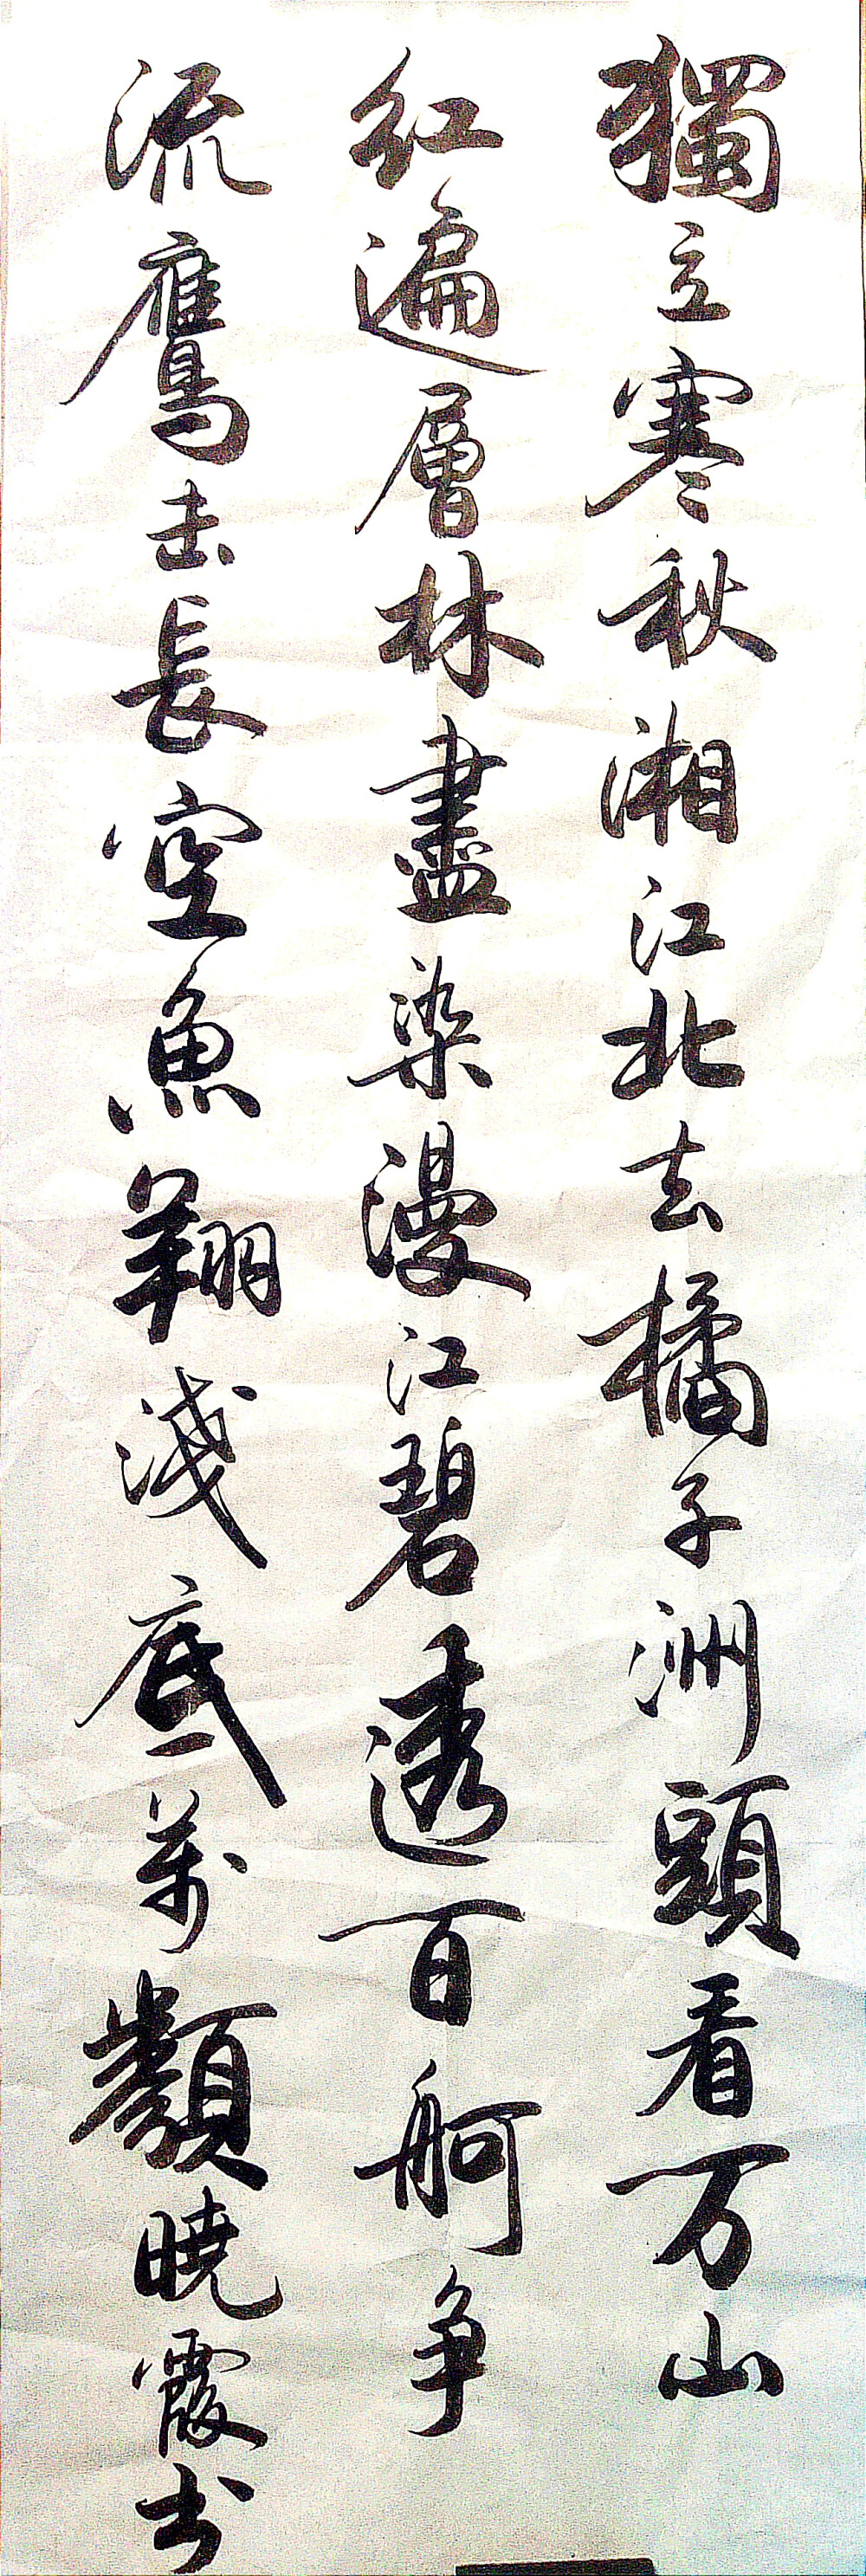 獨立寒秋湘江北去橘子洲頭看万山
紅遍層林盡染漫江碧透百舸争
流鷹击長空魚翔淺底萬類曉霞书